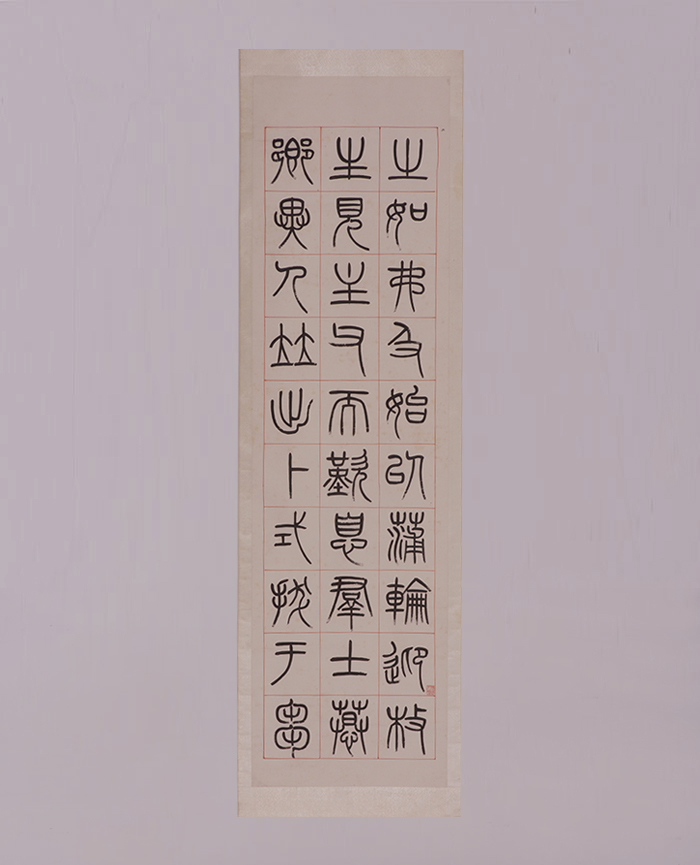 之如弗及始以蒲輪迎枚
生見主父而歎息羣士慕
鄉異人竝出卜式拔于芻